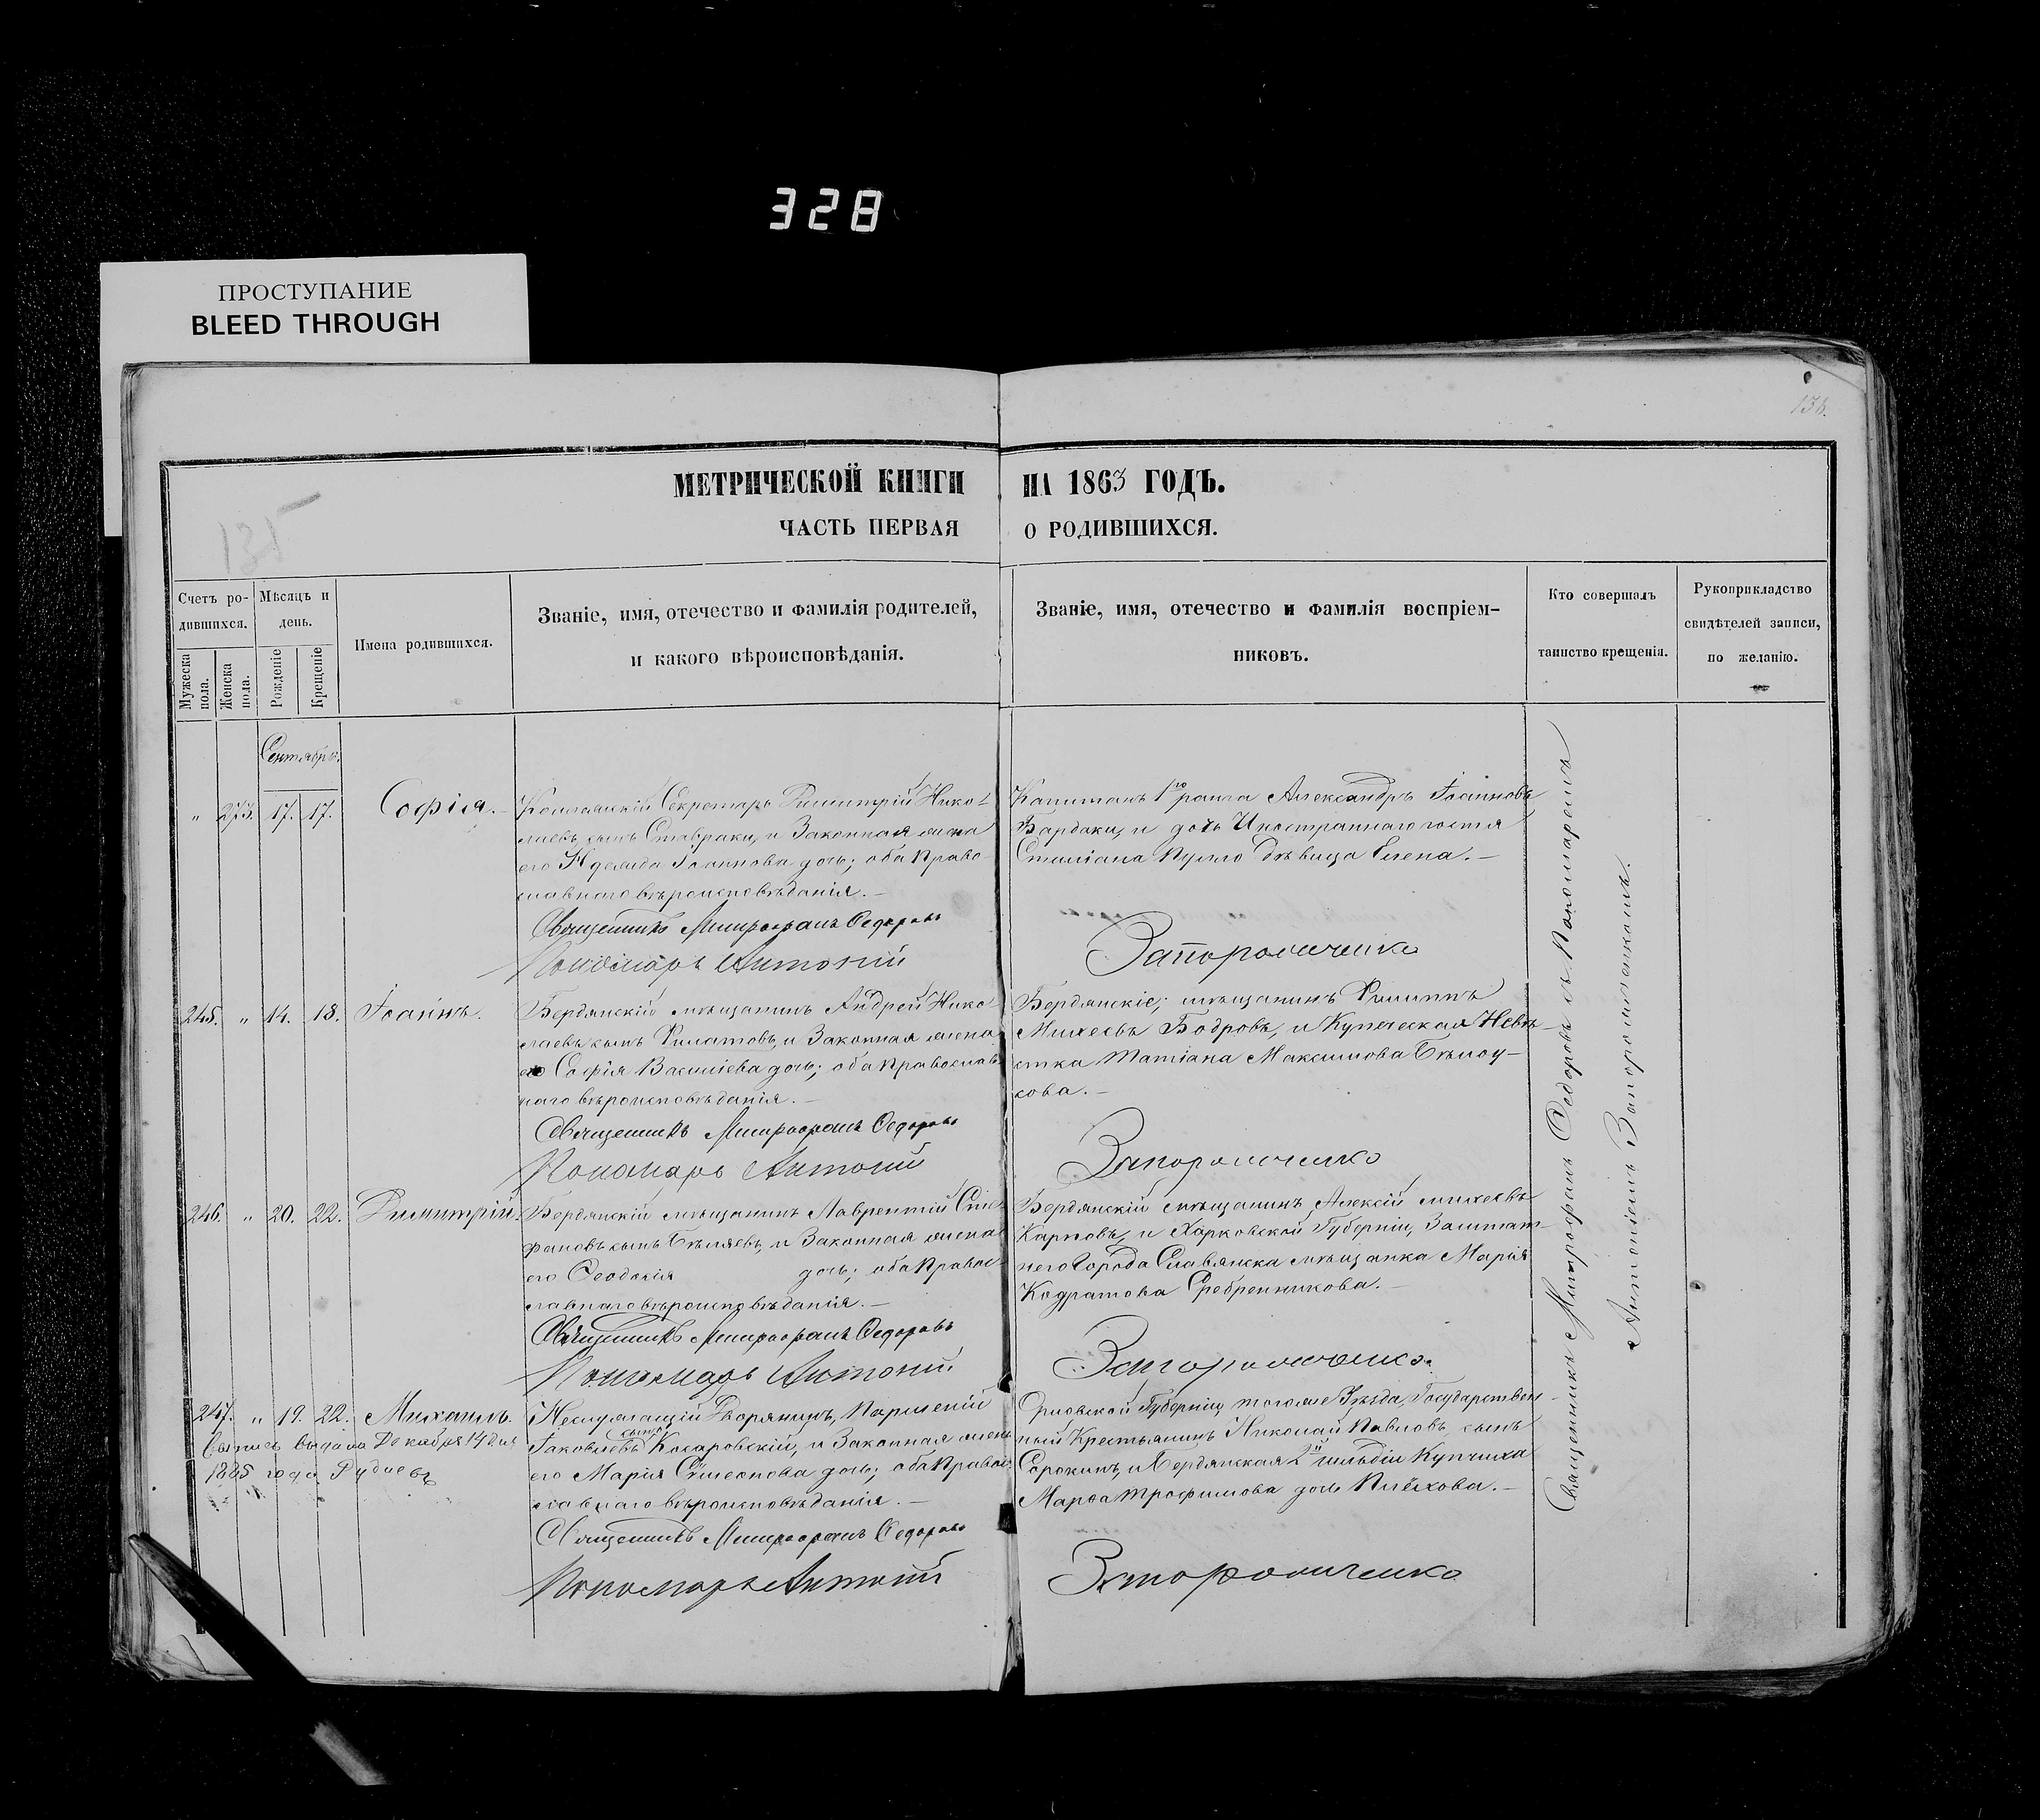 328
ПРОСТУПАНИЕ
BLEED THROUGH
138.
135
МЕТРИЧЕСКОЙ КНИГИ НА 1863 ГОДЪ.
ЧАСТЬ ПЕРВАЯ О РОДИВШИХСЯ.
Счетъ ро-
дившихся.
Мужеска пола.
Женска пола.
Мѣсяцъ и
день.
Рожденіе
Крещеніе
Имена родившихся.
Званіе, имя, отечество и фамилія родителей,
и какого вѣроисповѣданія.
Званіе, имя, отечество и фамилія воспріем-
никовъ.
Кто совершалъ
таинство крещенія.
Рукоприкладство
свидѣтелей записи,
по желанію.
Сентябрь.
" 273. 17. 17. Софія.
Коллежскій Секретарь Димитрій Нико-
лаевъ сынъ Ставраки, и Законная жена
его Аделаида Іоаннова дочь; оба Право-
славнаго вѣроисповѣданія.
Священникъ Митрофанъ Ѳедоровъ
Пономарь Антоній
Капитанъ 1го ранга Александръ Іоанновъ
Бардаки, и дочь Иностраннаго гостя
Стиліана дѣвица Елена.
Запорожченко
245. " 14. 18. Іоаннъ.
Бердянскій мѣщанинъ Андрей Нико-
лаевъ сынъ Филатовъ, и Законная жена
его Софія Василіева дочь; оба Православ-
наго вѣроисповѣданія.
Священникъ Митрофанъ Ѳедоровъ
Пономарь Антоній
Бердянскіе; мѣщанинъ Филиппъ
Михеевъ Бодровъ, и Купеческая Невѣ-
стка Татіана Максимова Бѣлоу-
сова.
Запорожченко
246. " 20. 22. Димитрій.
Бердянскій мѣщанинъ Лаврентій Сте-
фановъ сынъ Бѣляевъ, и Законная жена
его Ѳеодосія дочь; оба Правос-
лавнаго вѣроисповѣданія.
Священникъ Митрофанъ Ѳедоровъ
Пономарь Антоній
Бердянскій мѣщанинъ Алексѣй Михеевъ
Карповъ, и Харковской Губерніи, Заштат-
него Города Славянска мѣщанка Марія
Кодратова Сребренникова.
Запорожченко
247. " 19. 22. Михаилъ.
Выпись выдана Декабря 14 дня
1885 года
Неслужащій Дворянинъ, Парменій
Іаковлевъ сынъ Косаровскій, и Законная жена
его Марія Симеонова дочь; оба Правос-
лавнаго вѣроисповѣданія.
Священникъ Митрофанъ Ѳедоровъ
Пономарь Антоній
Орловской Губерніи, тогоже Уѣзда, Государствен-
ный Крестьянинъ Николай Павловъ сынъ
Сорокинъ, и Бердянская 2й гильдіи Купчиха
Марѳа Трофимова дочь Плёхова.
Запорожченко
Священникъ Митрофанъ Ѳедоровъ съ Пономаремъ
Антоніемъ Запорожченкомъ.